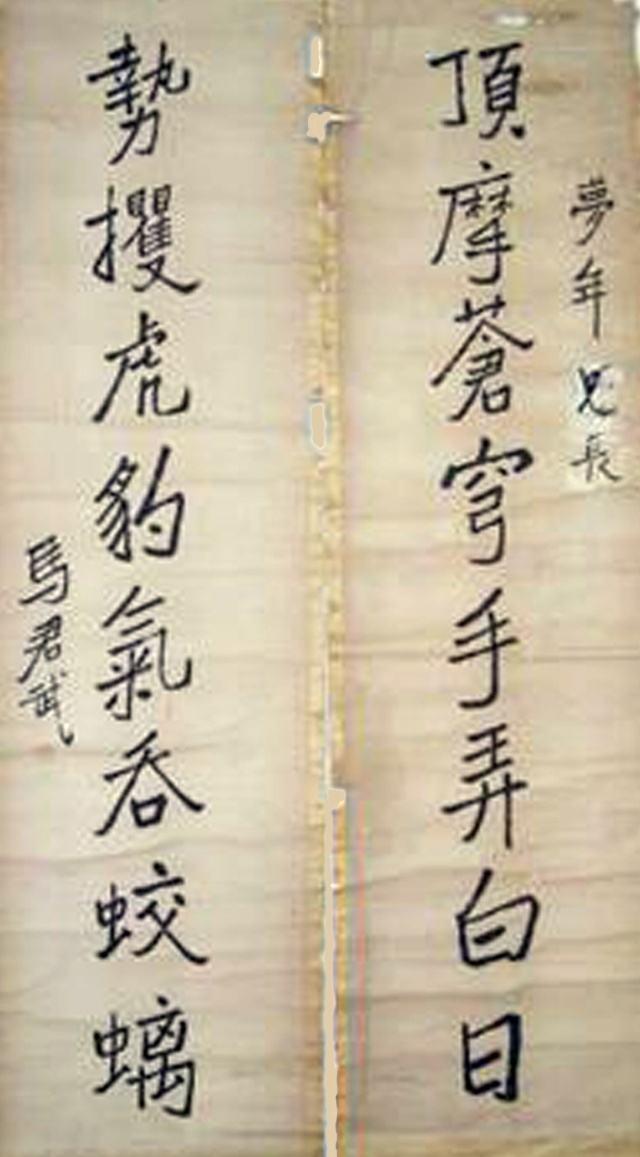 夢年兄長
頂摩蒼穹手弄白日
勢攫虎豹氣吞蛟螭
馬君武